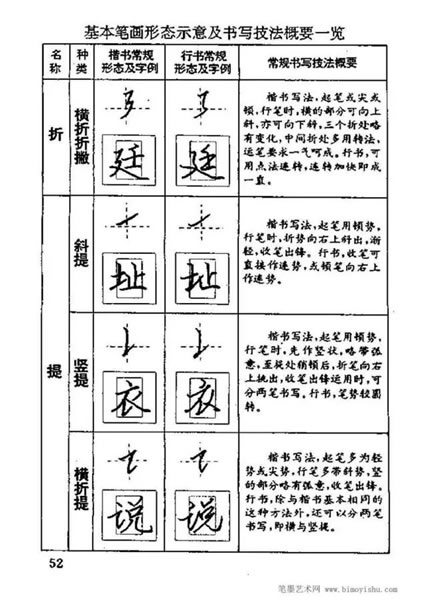 基本笔画形态示意及书写技法概要一览
名称
种类
楷书常规
形态及字例
行书常规
形态及字例
常规书写技法概要
折
横折折撇
廷
廷
楷书写法,起笔或尖或
顿,行笔时,横的部分可向上
斜,亦可向下斜,三个折处略
有变化,中间折处多用转法,
运笔要求一气呵成。行书,可
用点法连转,连转加快即成
一直。
提
斜提
址
址
楷书写法,起笔用顿势,
行笔时,折势向右上斜出,渐
轻,收笔出锋。行书,收笔可
直接作连势,或顿笔向右上
作连势。
竖提
衣
衣
楷书写法,起笔用顿势,
行笔时,先作竖状,略带弧
意,至提处稍顿后,折笔向右
上挑出,收笔出锋运用时,可
分两笔书写。行书,笔势较圆
转。
横折提
说
说
楷书写法,起笔多为轻
势或尖势,行笔多带斜势,竖
的部分略有弧意,收笔出锋。
行书,除与楷书基本相同的
这种方法外,还可以分两笔
书写,即横与竖提。
52
笔墨艺术网 www.bimoyishu.com